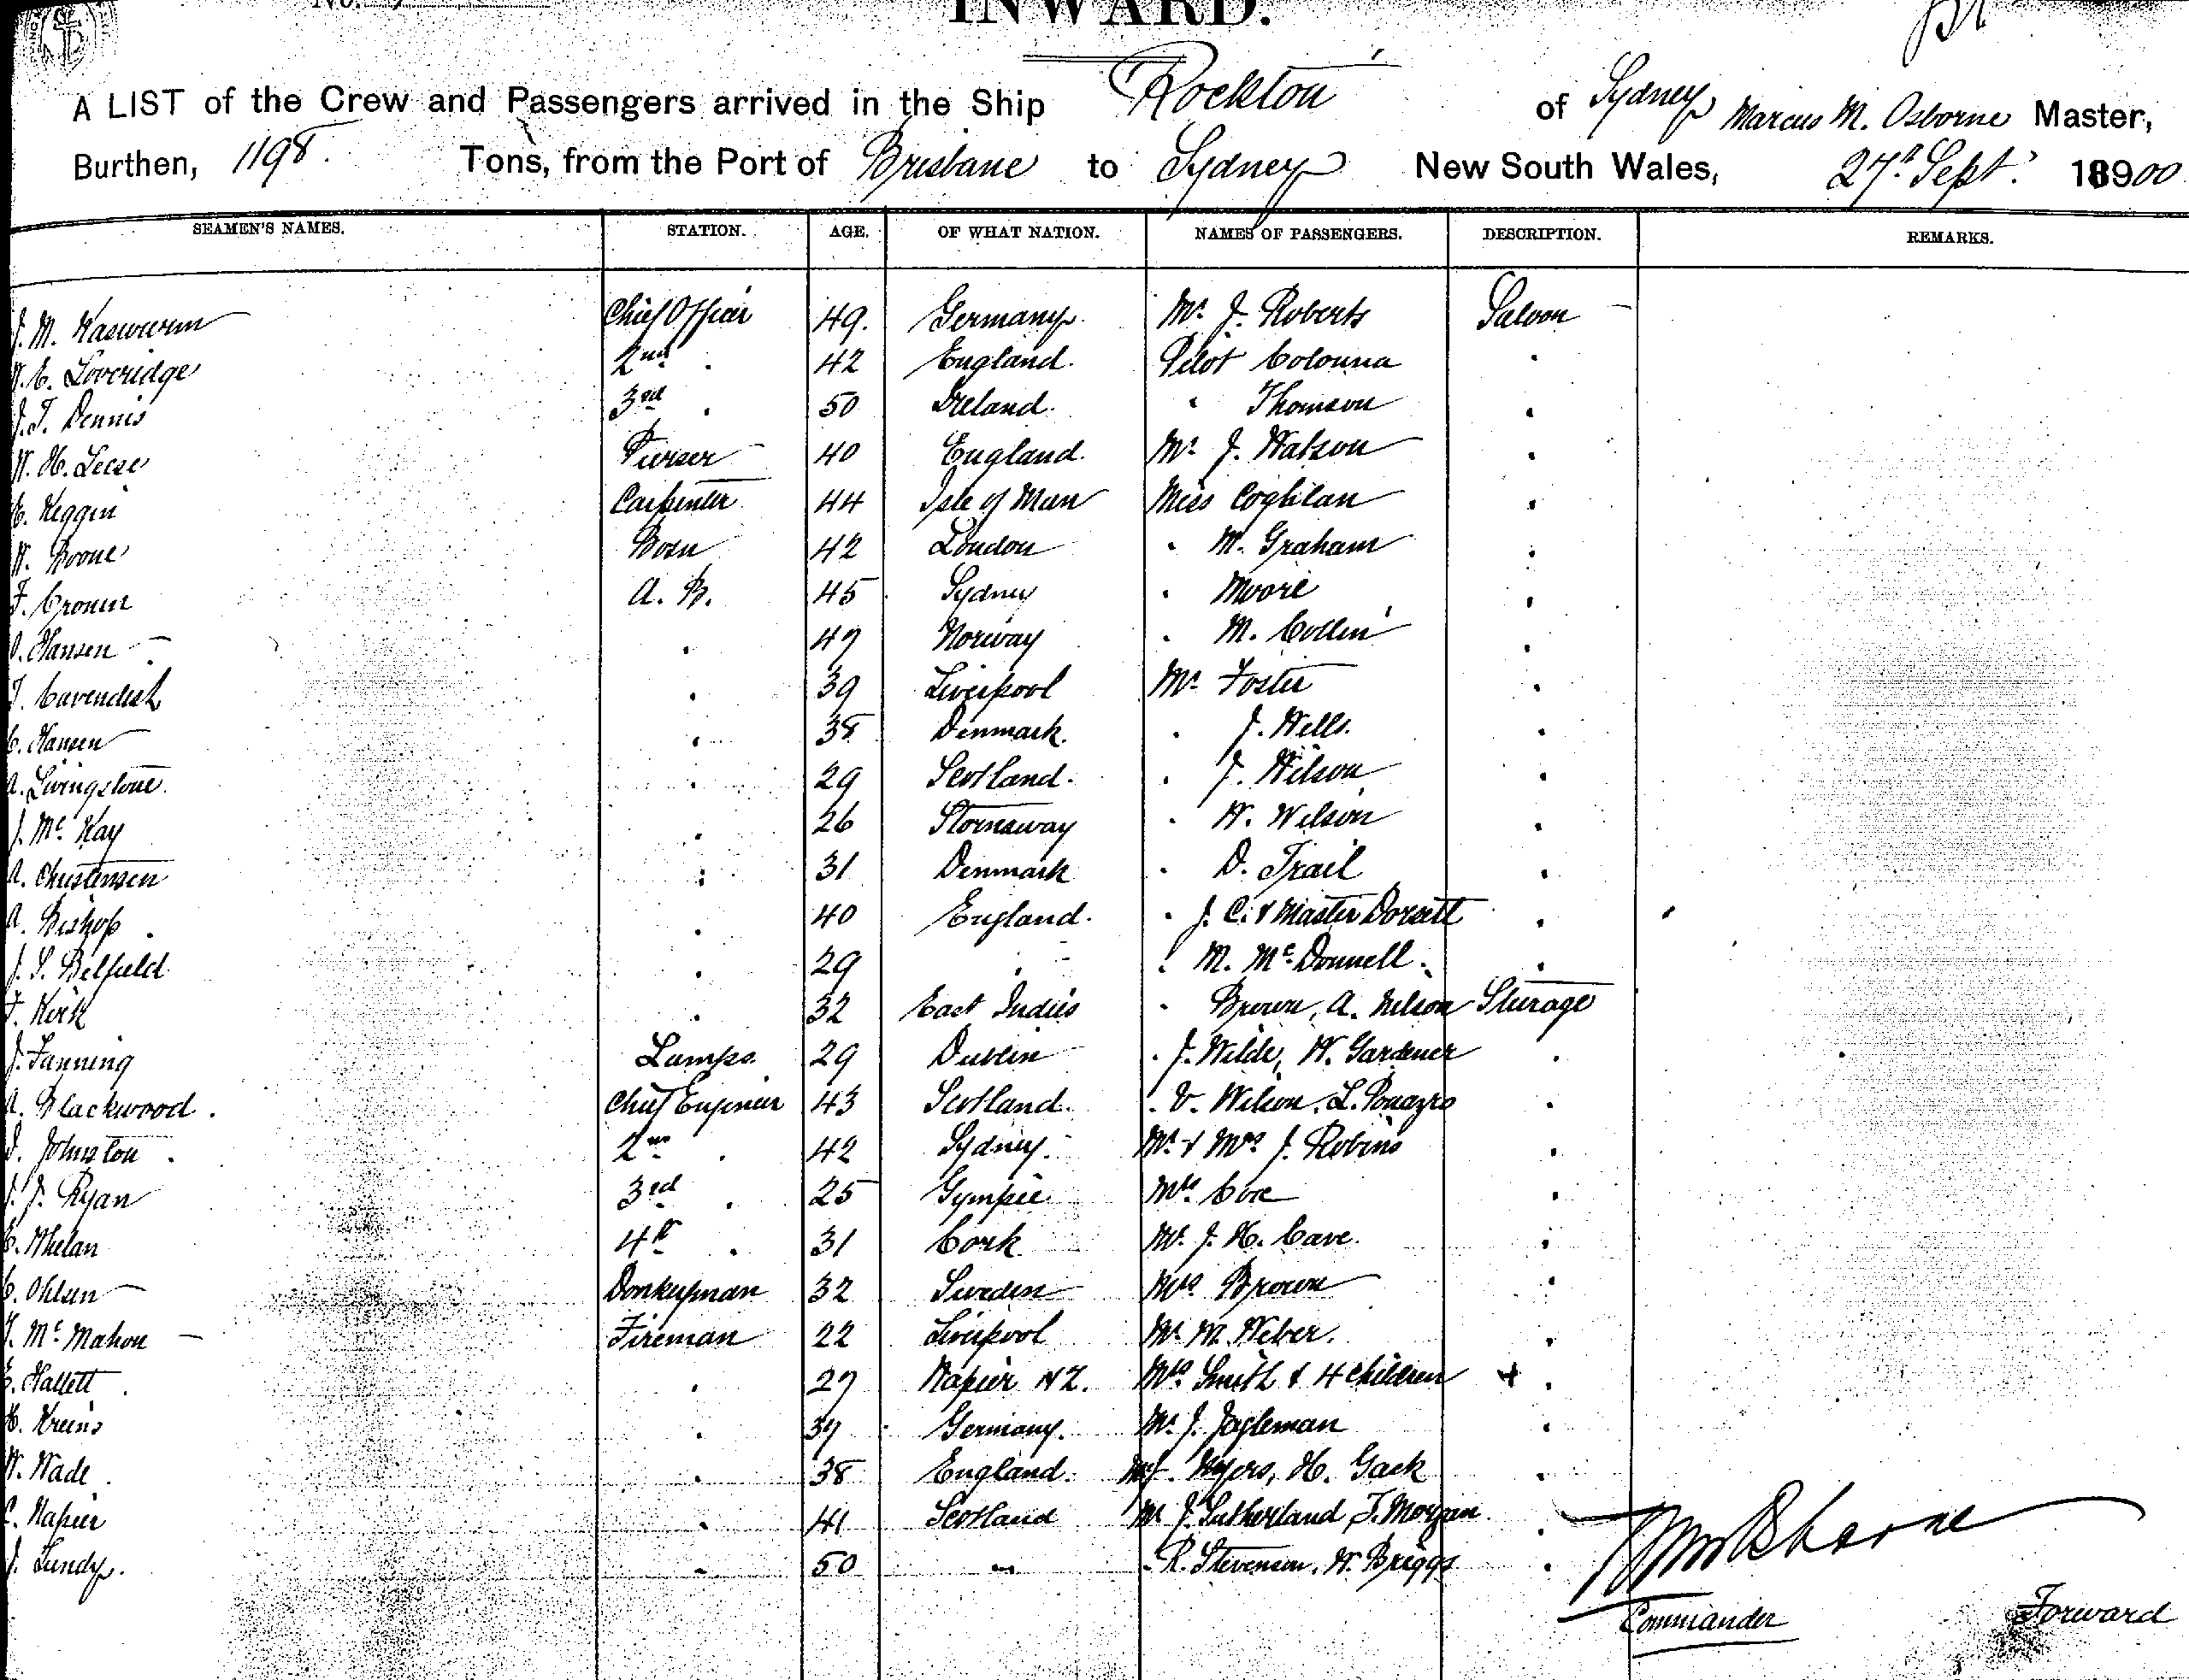 No.
INWARD.
A LIST of the Crew and Passengers arrived in the Ship Rockton of Sydney Marcus M. Osborne Master,
Burthen, 1198 Tons, from the Port of Brisbane to Sydney New South Wales, 27th Sept. 18900
SEAMEN'S NAMES. STATION. AGE. OF WHAT NATION. NAMES OF PASSENGERS. DESCRIPTION. REMARKS.
J. M. Chief Officer 49. Germany Mr. J. Roberts Saloon
W. E. Loveridge 2nd . 42 England. Pilot Colouna .
J. T. Dennis 3rd . 50 Ireland. " Thomson .
W. H. Leese Purser 40 England. Mr. J. Watson .
Keggin Carpenter 44 Isle of Man Miss Coghlan .
W. Boone Bosn 42 London " M. Graham .
F. Cronin A. B. 45 Sydney " Moore .
Hansen . 47 Norway " M. Collin .
T. Cavendish . 39 Liverpool Mr. Foster .
C. Hansen . 38 Denmark. " J. Wells. .
A. Livingstone . 29 Scotland. " J. Wilson .
J. McKay . 26 Stornaway " W. Wilson .
A. Christensen . 31 Denmark " D. Trail .
A. Bishop . 40 England. " J. C. & Master Dorsett .
J. S. Belfield . 29 . " M. McDonnell .
F. Kirk . 32 East Indies " Brown, A. Nelson Sturage
J. Fanning Lamps 29 Dublin " J. Wilde, W. Gardener .
A. Blackwood Chief Engineer 43 Scotland. " V. Wilson, L. .
Johnston 2nd . 42 Sydney. Mr. & Mrs. J. Robins .
J. Ryan 3rd . 25 Gympie Mrs. .
Whelan 4th . 31 Cork Mr. J. H. Cave. .
C. Ohlsen Donkeyman 32 Sweden Mrs Brown .
McMahon Fireman 22 Liverpool Mr. M. Weber. .
Hallett . 27 Napier NZ. Mrs. Smith & 4 children + .
H. . 37 Germany. Mr. J. .
W. Wade . 38 England. Myers, H. Gack .
Napier . 41 Scotland Mr J. Sutherland, T. Morgan .
J. Lundy. . 50 " " R. Stevenson, W. Briggs .
Commander
Forward